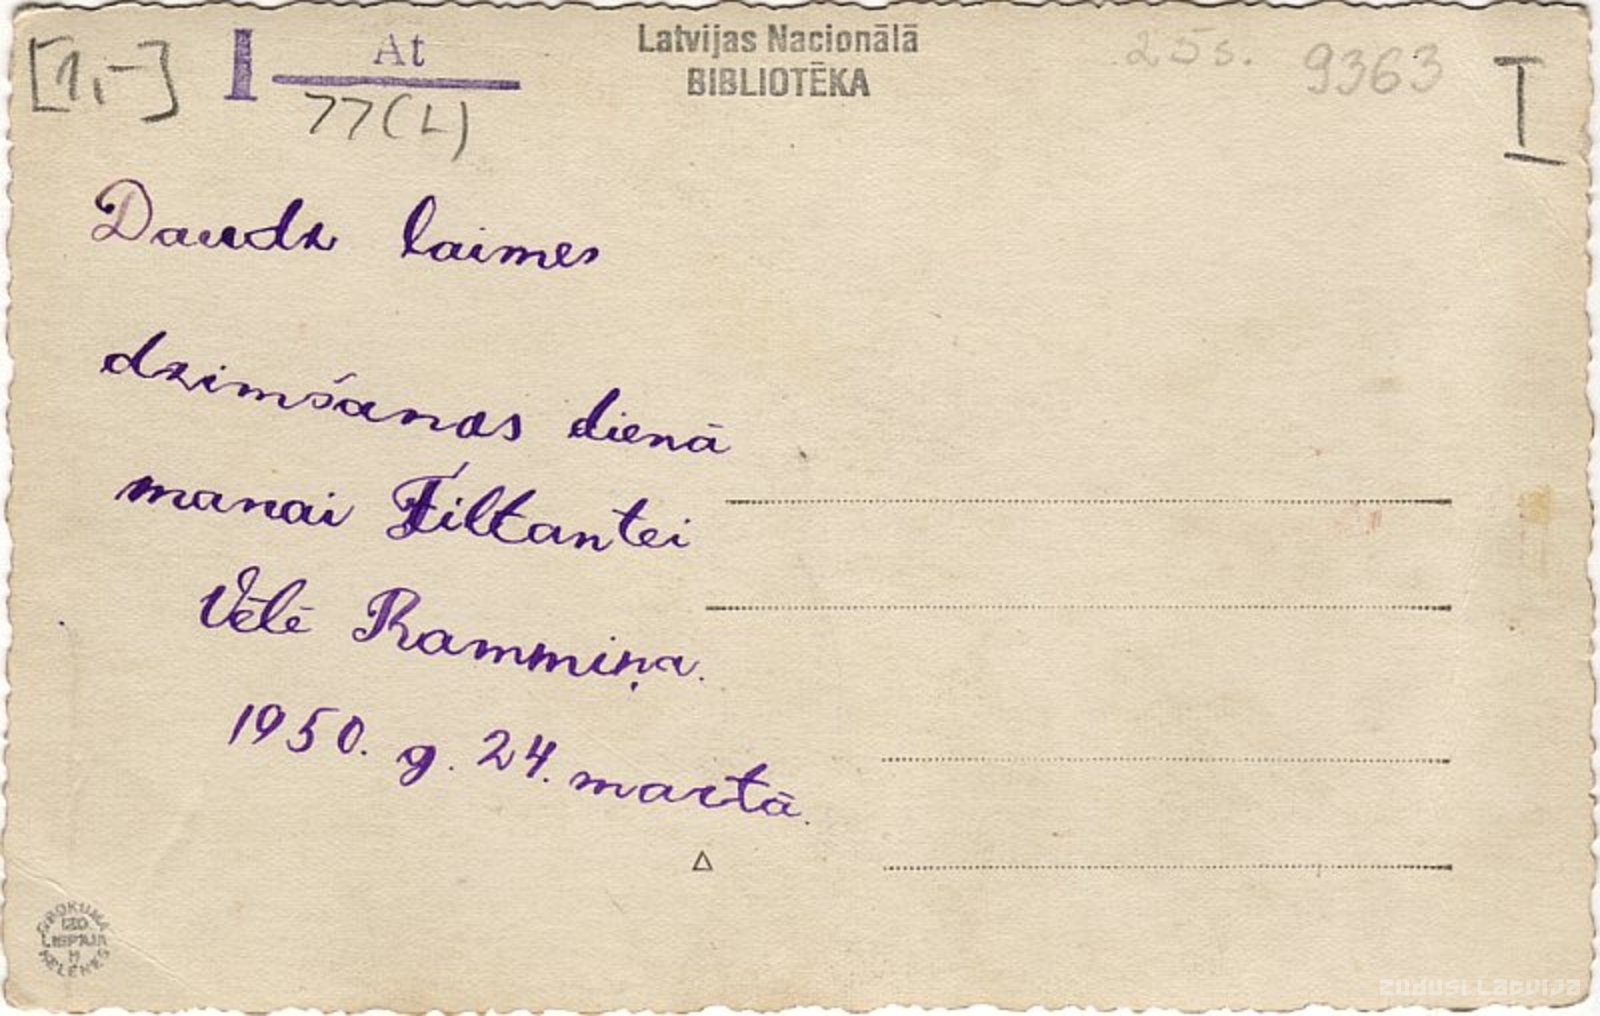 [1,-] I At
77(L)
Latvijas Nacionālā
BIBLIOTĒKA
25s. 9363 I
Daudz laimes
dzimšanas dienā
manai Tiltantei
Vēlē Rammiņa.
1950. g. 24. martā.
IZO
LIEPĀJĀ
zudusi Latvija